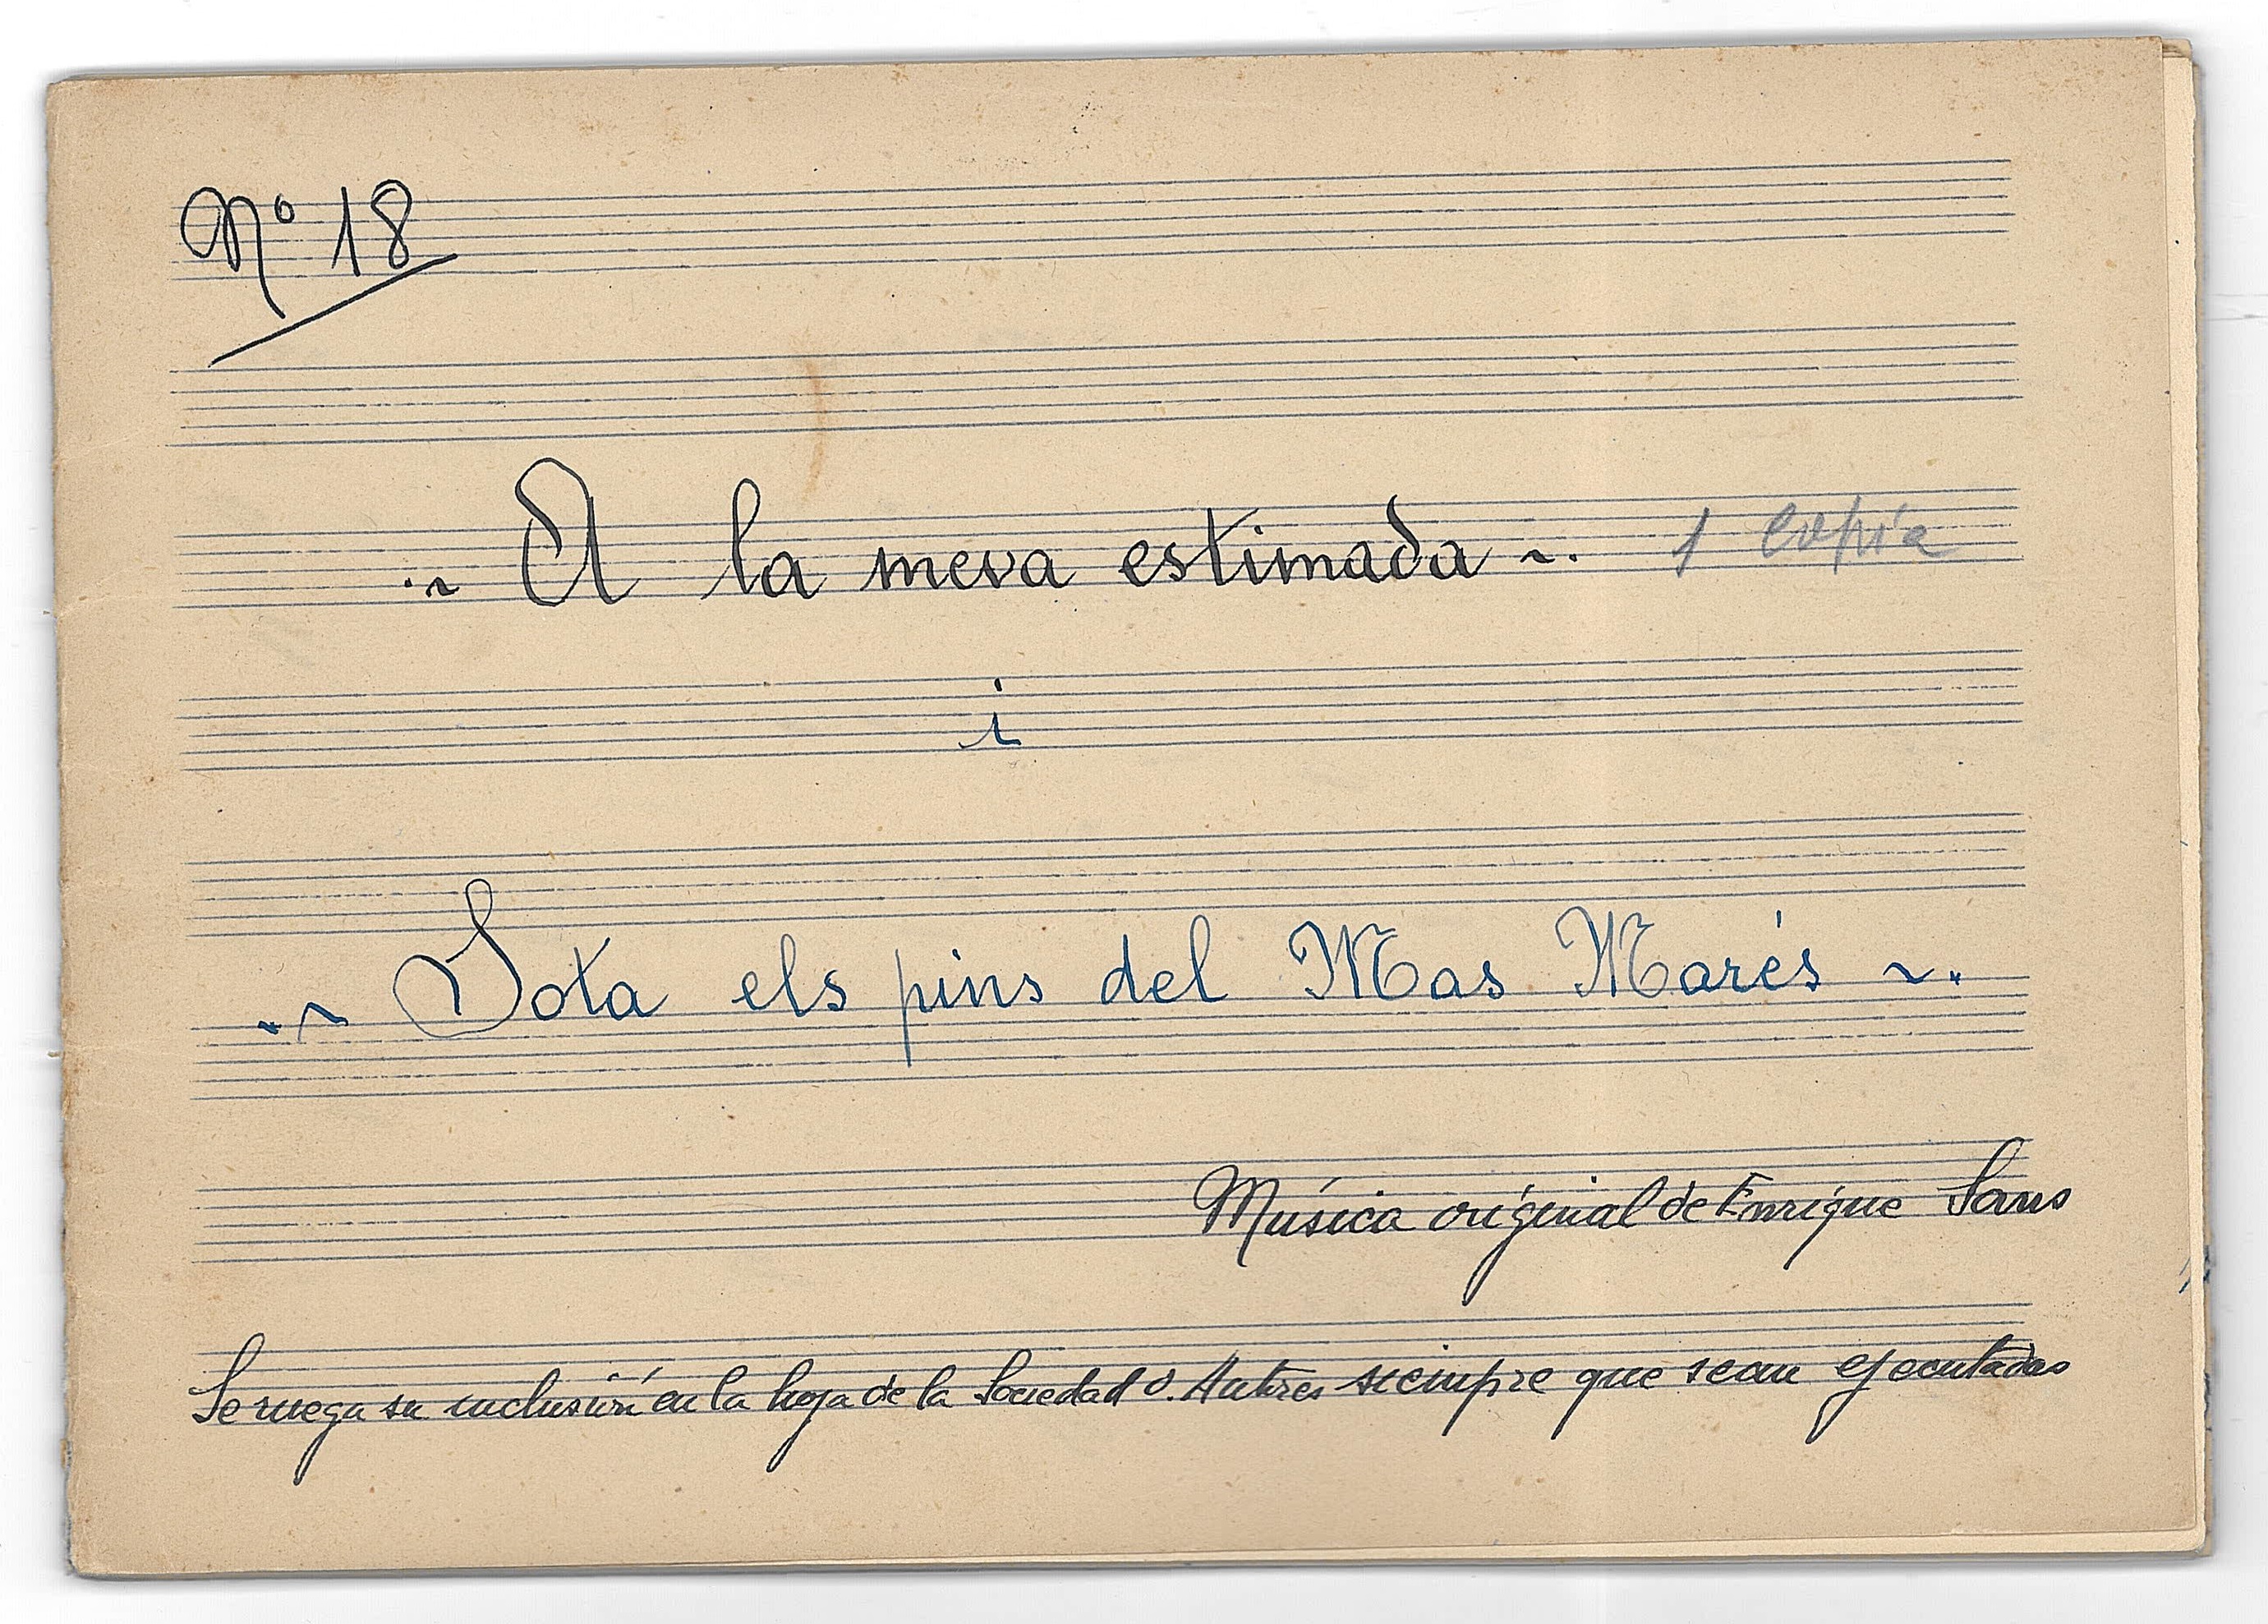 Nº 18
.~ A la meva estimada ~. 1 Copia
i
.~ Sota els pins del Mas Marés ~.
Música original de Enrique Sans
Se ruega su inclusión en la hoja de la Sociedad d. Autores siempre que sean ejecutadas